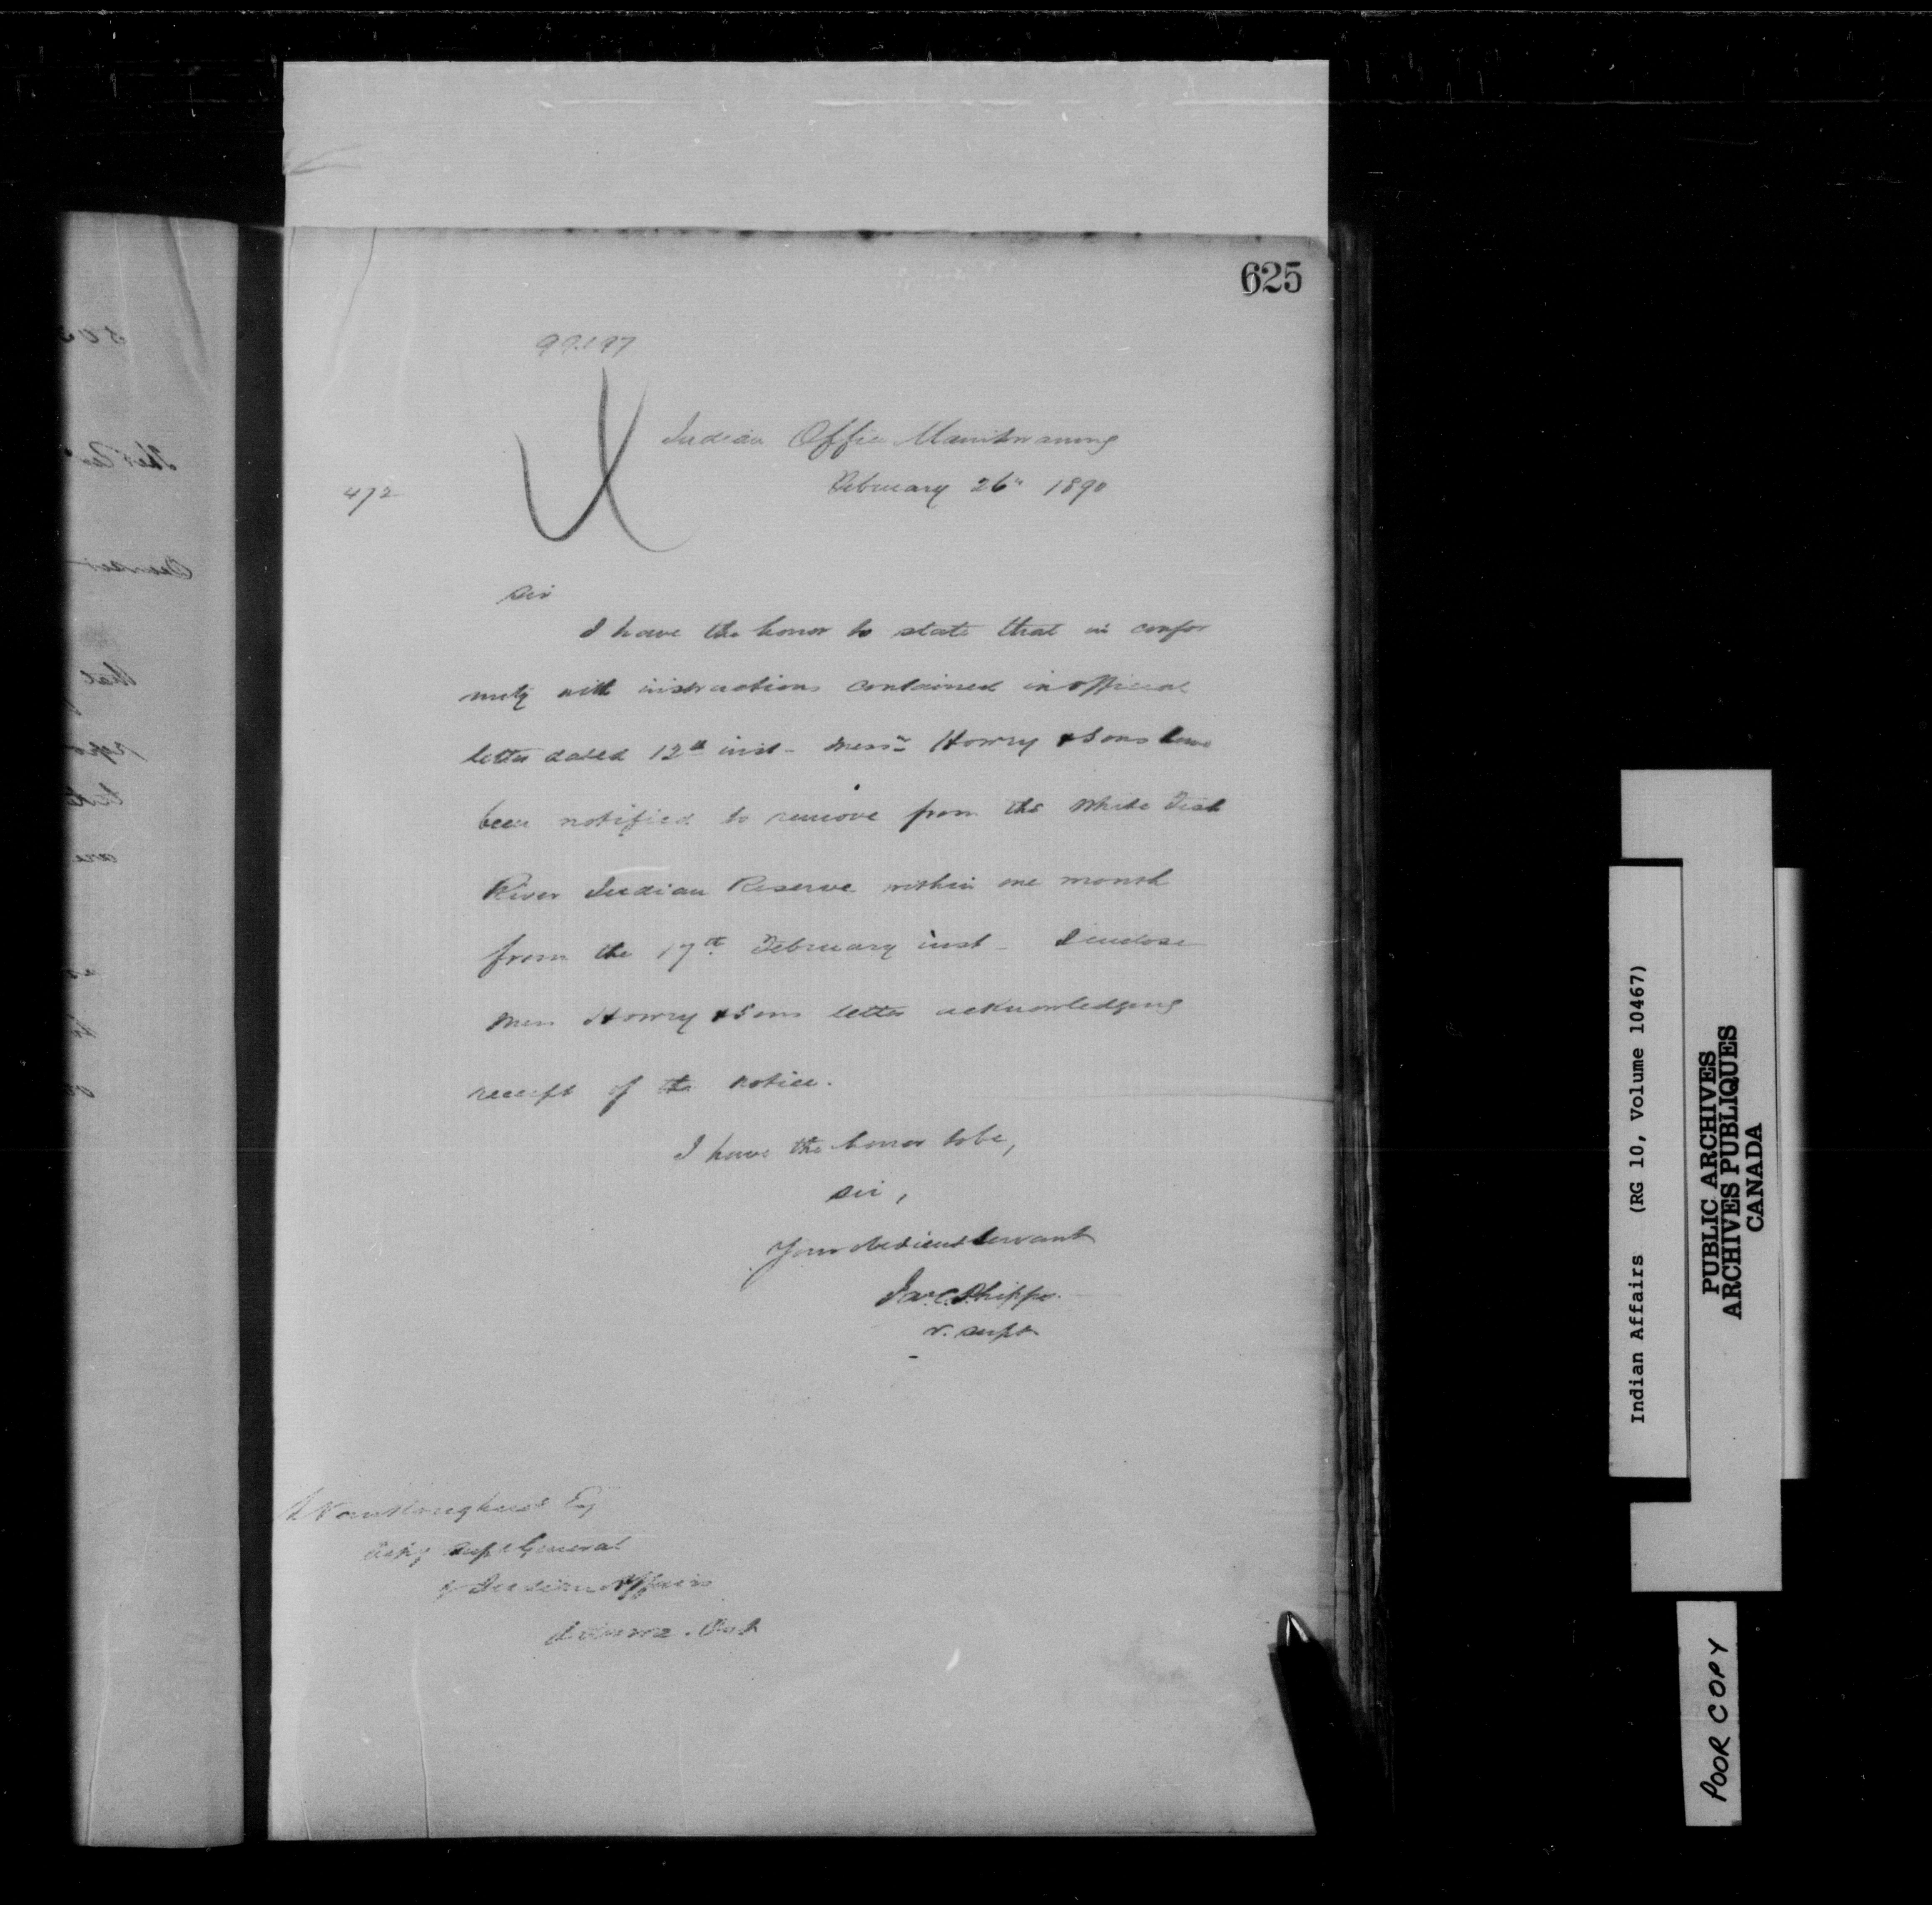 625
99197
Indian Office Manitowaning
472
February 26" 1890
Sir
I have the honor to state that in confor
mity with instructions contained in official
letter dated 12th inst - Messrs Howry & Sons have
been notified to remove from the White Fish
River Indian Reserve within one month
from the 17th February inst - I enclose
Mess Howry & Sons letter acknowledging
receipt of the notice.
I have the honor to be,
Sir,
Your obedient Servant
Jas. C. Phipps.
V. Supt
L Vankoughnet Esq
Supt General
of Indian Affairs
Ottawa. Ont
Indian Affairs (RG 10, Volume 10467)
PUBLIC ARCHIVES
ARCHIVES PUBLIQUES
CANADA
POOR COPY